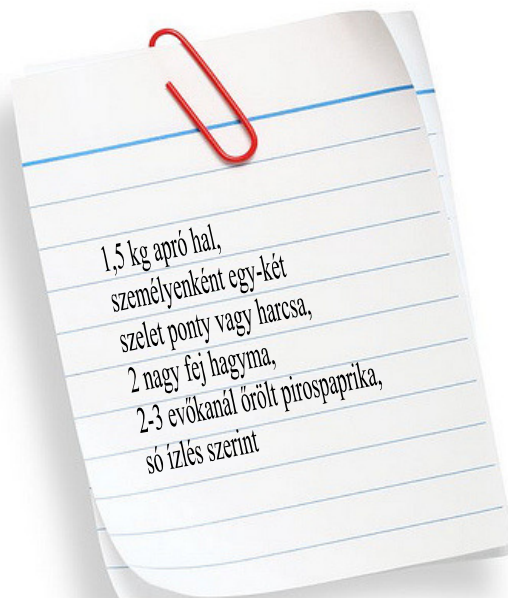 1,5 kg apró hal,
személyenként egy-két
szelet ponty vagy harcsa,
2 nagy fej hagyma,
2-3 evőkanál őrölt pirospaprika,
só ízlés szerint